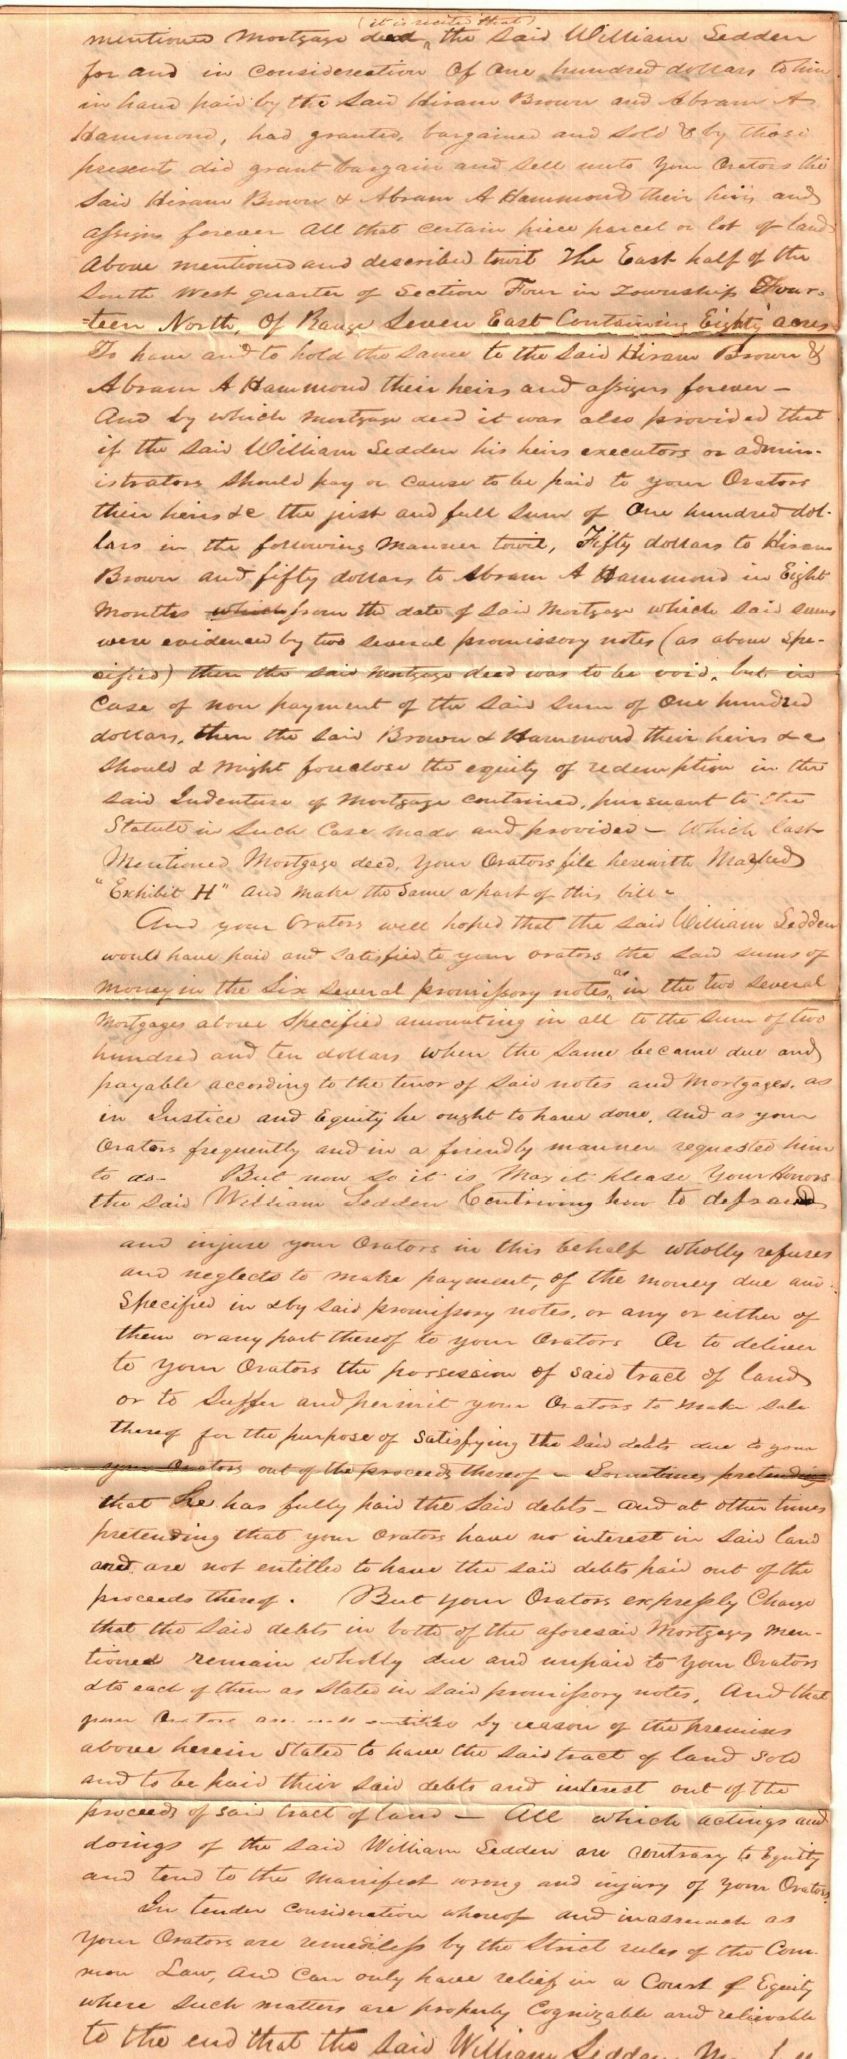 (it is recited that)
mentioned Mortgage deed, the said William Sedden
for and in consideration of One hundred dollars to him
in hand paid by the said Hiram Brown and Abram A
Hammond, had granted, bargained and sold & by those
presents did grant bargain and sell unto your Orators the
said Hiram Brown & Abram A Hammond their heirs and
assigns forever All that certain piece parcel or lot of land
above mentioned and described towit The East half of the
South West quarter of Section Four in Township Four-
=teen North, Of Range Seven East Containing Eighty acres
To have and to hold the same to the said Hiram Brown &
Abram A Hammond their heirs and assigns forever –
And by which mortgage deed it was also provided that
if the said William Sedden his heirs executors or admin-
istrators should pay or cause to be paid to your Orators
their heirs &c the just and full sum of One hundred dol-
lars in the following manner towit, Fifty dollars to Hiram
Brown and fifty dollars to Abram A Hammond in Eight
months which from the date of said Mortgage which said sums
were evidenced by two several promissory notes (as above spe-
cified) then the said Mortgage deed was to be void, but in
case of non payment of the said sum of One hundred
dollars, then the said Brown & Hammond their heirs &c
should & might foreclose the equity of redemption in the
said Indenture of Mortgage contained, pursuant to the
Statute in such case made and provided – Which last
Mentioned Mortgage deed, your Orators file herewith Marked
"Exhibit H" and make the same a part of this bill –
And your Orators well hoped that the said William Sedden
would have paid and satisfied to your orators the said sums of
money in the six several promissory notes, as in the two several
Mortgages above specified amounting in all to the sum of two
hundred and ten dollars when the same became due and
payable according to the tenor of said notes and Mortgages. as
in Justice and Equity he ought to have done, and as your
Orators frequently and in a friendly manner requested him
to do – But now so it is May it please Your Honors
the said William Sedden Contriving how to defraud
and injure your Orators in this behalf wholly refuses
and neglects to make payment, of the money due and
specified in & by said promissory notes, or any or either of
them or any part thereof to your Orators Or to deliver
to your Orators the possession of said tract of land
or to suffer and permit your Orators to make sale
thereof for the purpose of satisfying the said debts due to your
your Orators out of the proceeds thereof – Sometimes pretending
that he has fully paid the said debts – and at other times
pretending that your Orators have no interest in said land
and are not entitled to have the said debts paid out of the
proceeds thereof. But your Orators expressly Charge
that the said debts in both of the aforesaid Mortgages men-
tioned remain wholly due and unpaid to your Orators
& to each of them as stated in said promissory notes, And that
your Orators are well entitled by reason of the premises
above herein stated to have the said tract of land sold
and to be paid their said debts and interest out of the
proceeds of said tract of land – All which actings and
doings of the said William Sedden are contrary to Equity
and tend to the manifest wrong and injury of your Orators.
In tender consideration whereof and inasmuch as
your Orators are remediless by the Strict rules of the Com-
mon Law, and can only have relief in a Court of Equity
where such matters are properly Cognizable and relievable
to the end that the said William Sedden